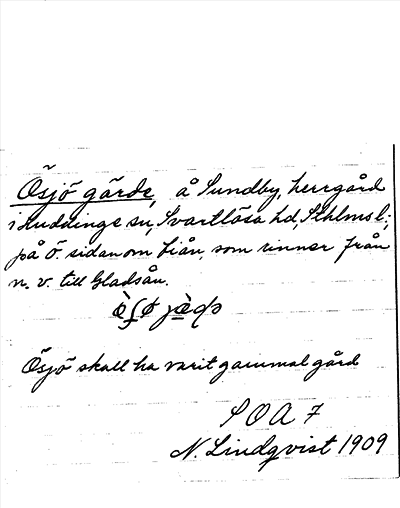 Ösjö gärde, å Sundby, herrgård
i Huddinge sn, Svartlösa hd, Sthlms l.;
på ö. sidan om biån, som rinner från
n. v. till Gladsån.
Ösjö skall ha varit gammal gård
S O A 7
N. Lindqvist 1909